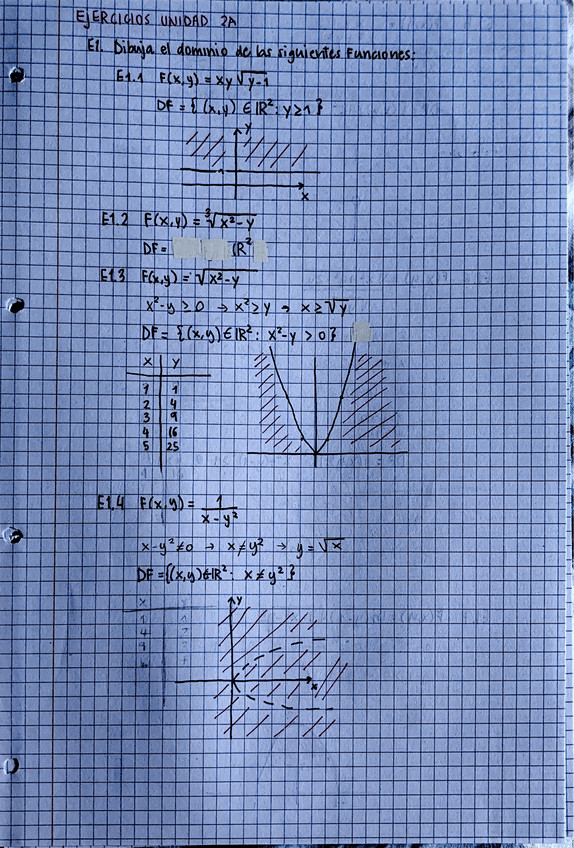 EJERCICIOS UNIDAD 2A
E1. Dibuja el dominio de las siguientes Funciones:
E1.1 F(x,y) = xy√(y-1)
DF = { (x,y) ∈ IR²: y≥1 }
y
1
x
E1.2 F(x,y) = ∛(x²-y)
DF = IR²
E1.3 F(x,y) = √(x²-y)
x²-y ≥ 0 → x² ≥ y → x ≥ √y
DF = {(x,y) ∈ IR²: x²-y > 0}
x y
1 1
2 4
3 9
4 16
5 25
E1.4 F(x,y) = 1/(x-y²)
x-y² ≠ 0 → x ≠ y² → y = √x
DF = {(x,y) ∈ IR²: x ≠ y²}
x
1 1
4 2
9
y
x